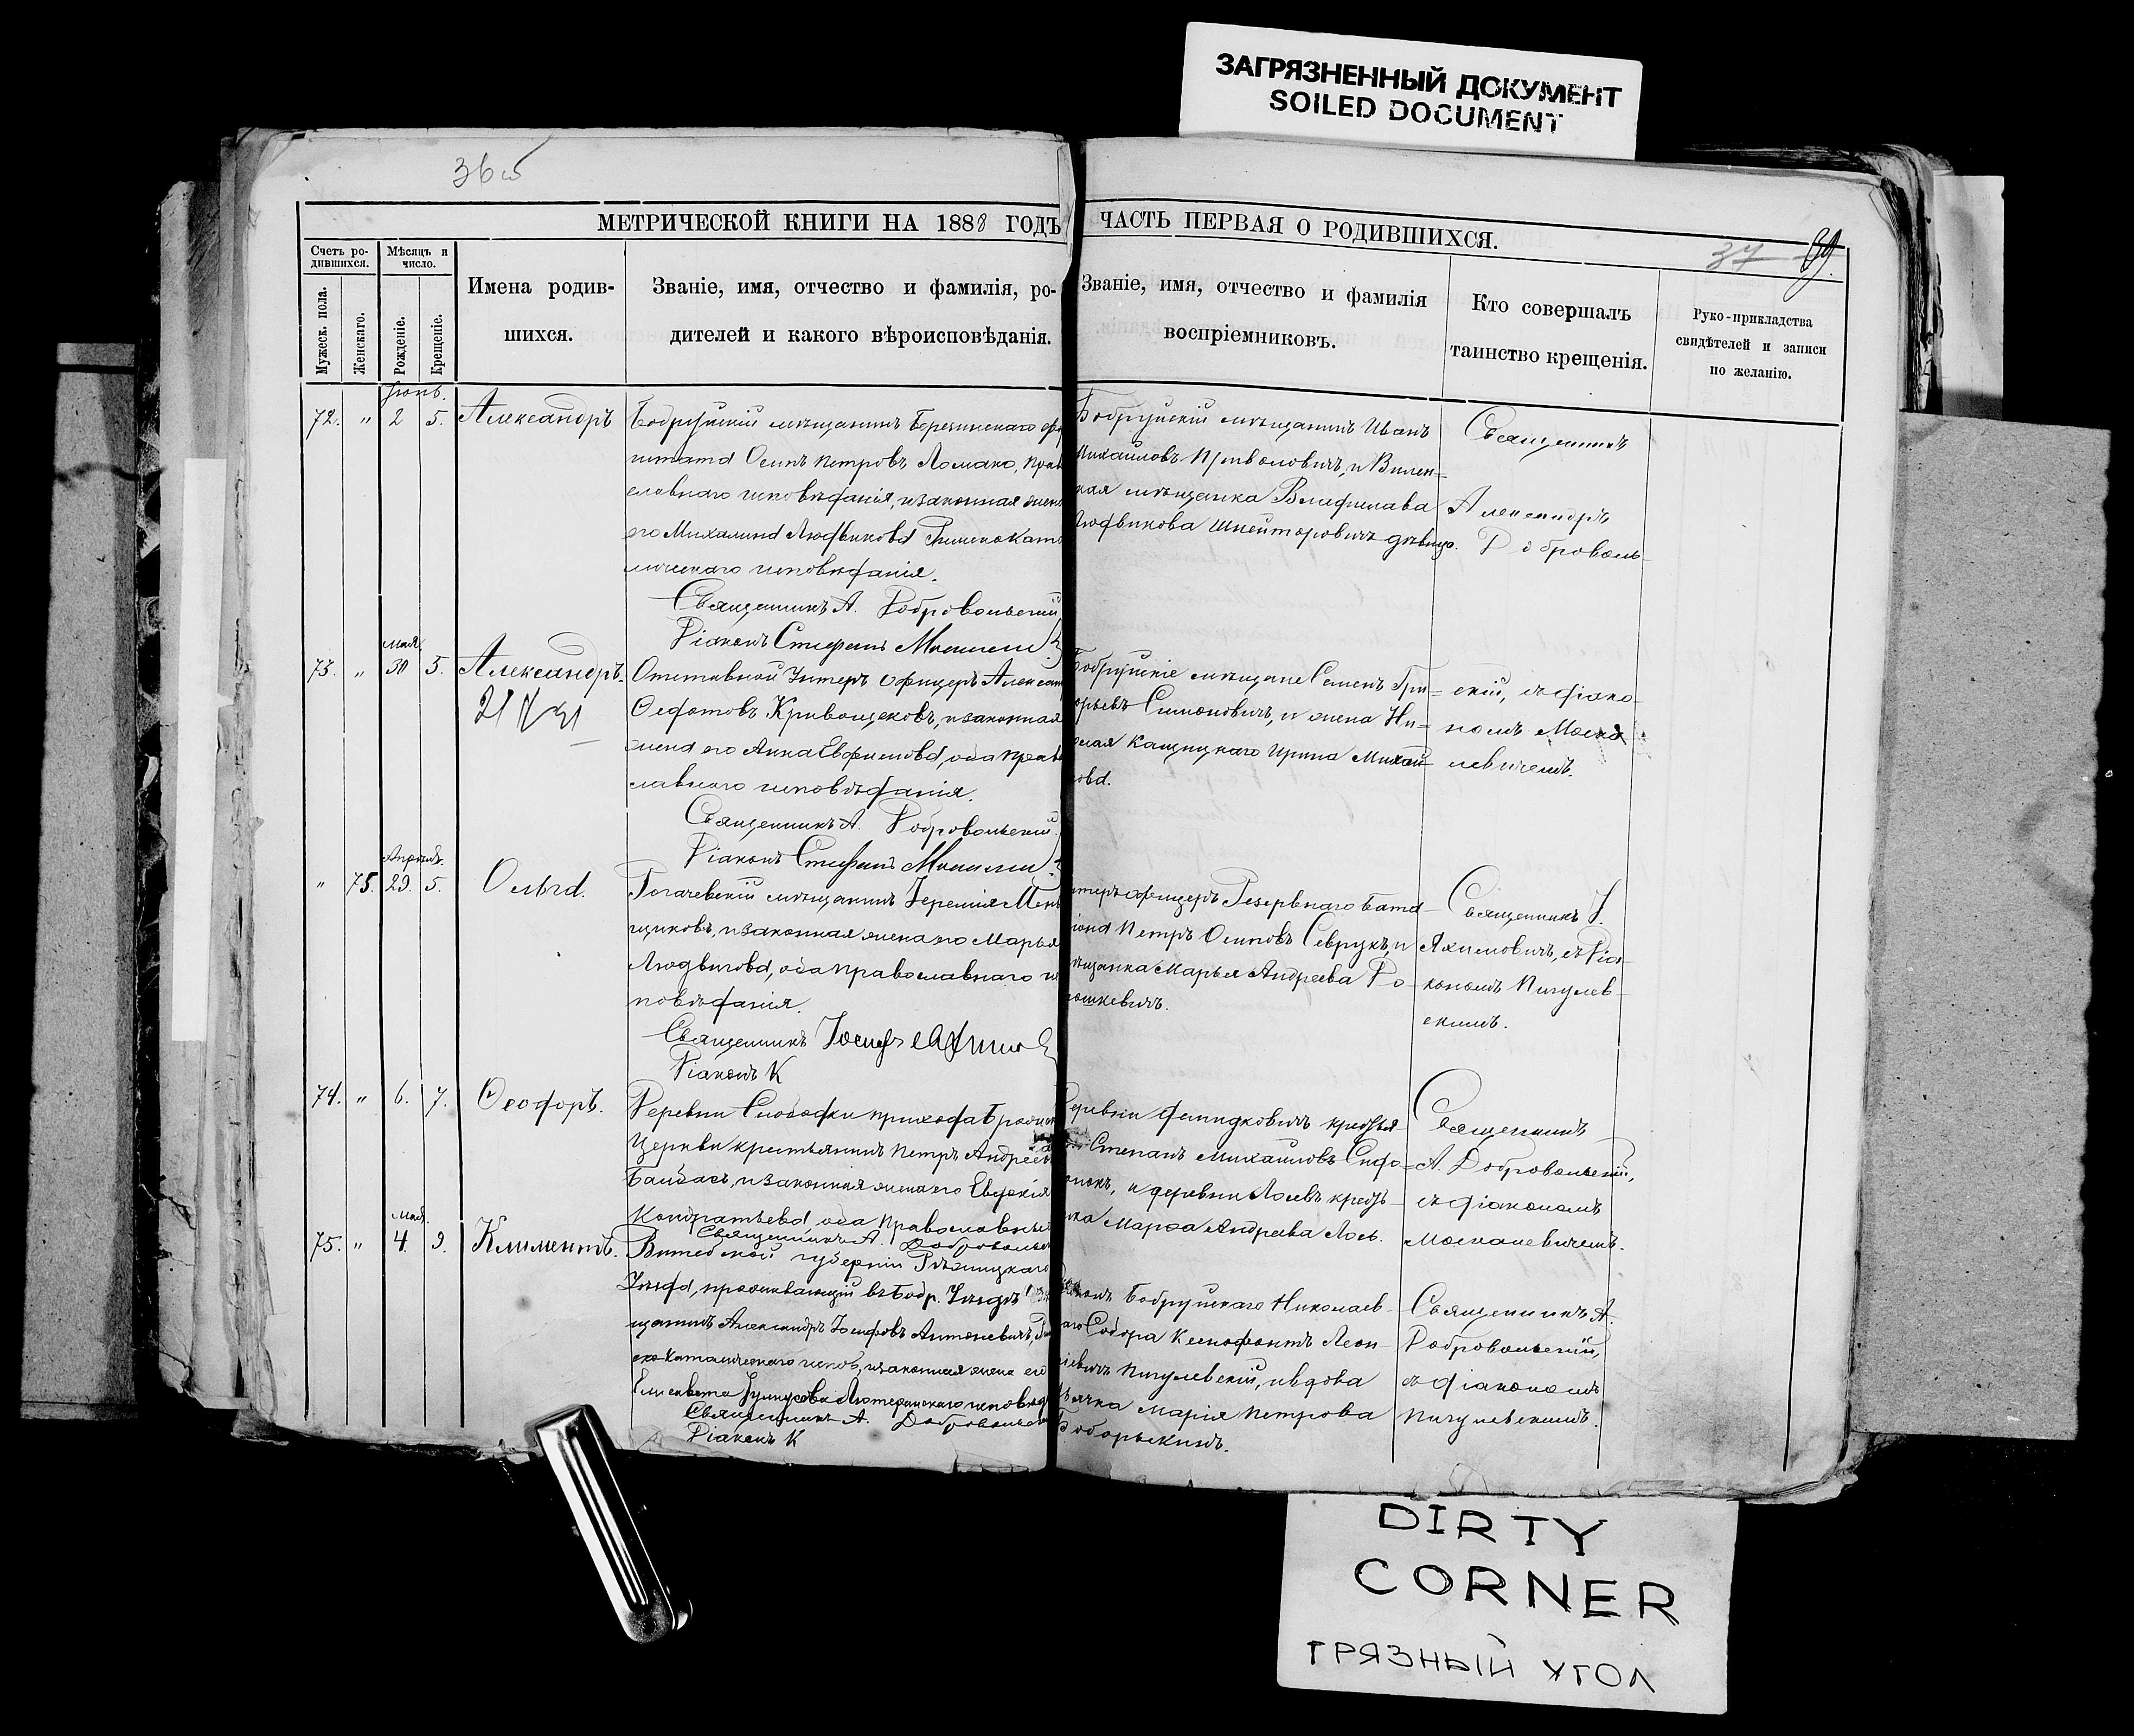 ЗАГРЯЗНЕННЫЙ ДОКУМЕНТ
SOILED DOCUMENT
36 об
МЕТРИЧЕСКОЙ КНИГИ НА 1888 ГОДЪ
Счетъ ро-
дившихся.
Мужеск. пола.
Женскаго.
Мѣсяцъ и
число.
Рожденіе.
Крещеніе.
Имена родив-
шихся.
Званіе, имя, отчество и фамилія, ро-
дителей и какого вѣроисповѣданія.
ЧАСТЬ ПЕРВАЯ О РОДИВШИХСЯ.
37
Званіе, имя, отчество и фамилія
воспріемниковъ.
Кто совершалъ
таинство крещенія.
Руко-прикладства
свидѣтелей и записи
по желанію.
Іюнь.
72. " 2 5. Александръ
Бобруйскій мѣщанинъ Березинскаго
Осипъ Петровъ Ломако, прав
славнаго исповѣданія, и законная жена
его Михалина Людвикова Римскокато
лическаго исповѣданія.
Священникъ А. Добровольскій
Діаконъ Стефанъ
Бобруйскій мѣщанинъ Иванъ
Михайловъ и Вилен-
кая мѣщанка Владислава
Людвикова дѣвица.
Священникъ
Александръ
Доброволь-
Мая
73. " 30 5. Александръ.
Отставной Унтеръ офицеръ Алексан
Федотовъ Кривощековъ, и законная
жена его Анна Евфимова, оба правос
лавнаго исповѣданія.
Священникъ А. Добровольскій
Діаконъ Стефанъ
Бобруйскіе мѣщане Семенъ Гри-
горьевъ Симоновичъ, и жена Ни-
колая Кащицкаго Ирина Михай-
лова.
скій, съ діако-
номъ Моска
левичемъ.
Апрѣль.
" 75. 29. 5. Ольга.
Рогачевскій мѣщанинъ Іеремія Мен
щиковъ, и законная жена его Марья
Людвигова, оба православнаго ис
повѣданія.
Священникъ Іосифъ
Діаконъ К
нтеръ офицеръ Резервнаго Бата-
ліона Петръ Осиповъ Севрукъ, и
мѣщанка Марья Андреева Ро-
мошкевичъ.
Священникъ І.
Якимовичъ, съ Діа-
кономъ Пигулев-
скимъ.
74. " 6. 7. Ѳеодоръ.
Деревни Слободки прихода
Церкви крестьянинъ Петръ Андреевъ
Байбасъ, и законная жена его Евдокія
Кондратьева, оба православные
Священникъ А. Добровольск
Деревни крестья-
Степанъ Михайловъ Сидо-
и деревни Лосевъ кресть-
нка Марѳа Андреева Лось.
Священникъ
А. Добровольскій,
съ діакономъ
Москалевичемъ.
Мая.
75. " 4. 9. Климентъ.
Витебской губерніи Рѣжицкаго
Уѣзда, проживающій въ Бобр. Уѣздѣ
щанинъ Александръ Іосифовъ Антоневичъ, Рим
ско Католическаго испов., и законная жена его
Елисавета Лютеранскаго исповѣд
Священникъ А. Добровольск
Діаконъ К
Діаконъ Бобруйскаго Николаев-
каго Собора Ксенофонтъ Леон-
тіевичъ Пигулевскій, и вдова
Марія Петрова
Боборыкинъ.
Священникъ А.
Добровольскій,
съ діакономъ
Пигулевскимъ.
DIRTY
CORNER
ГРЯЗНЫЙ УГОЛ